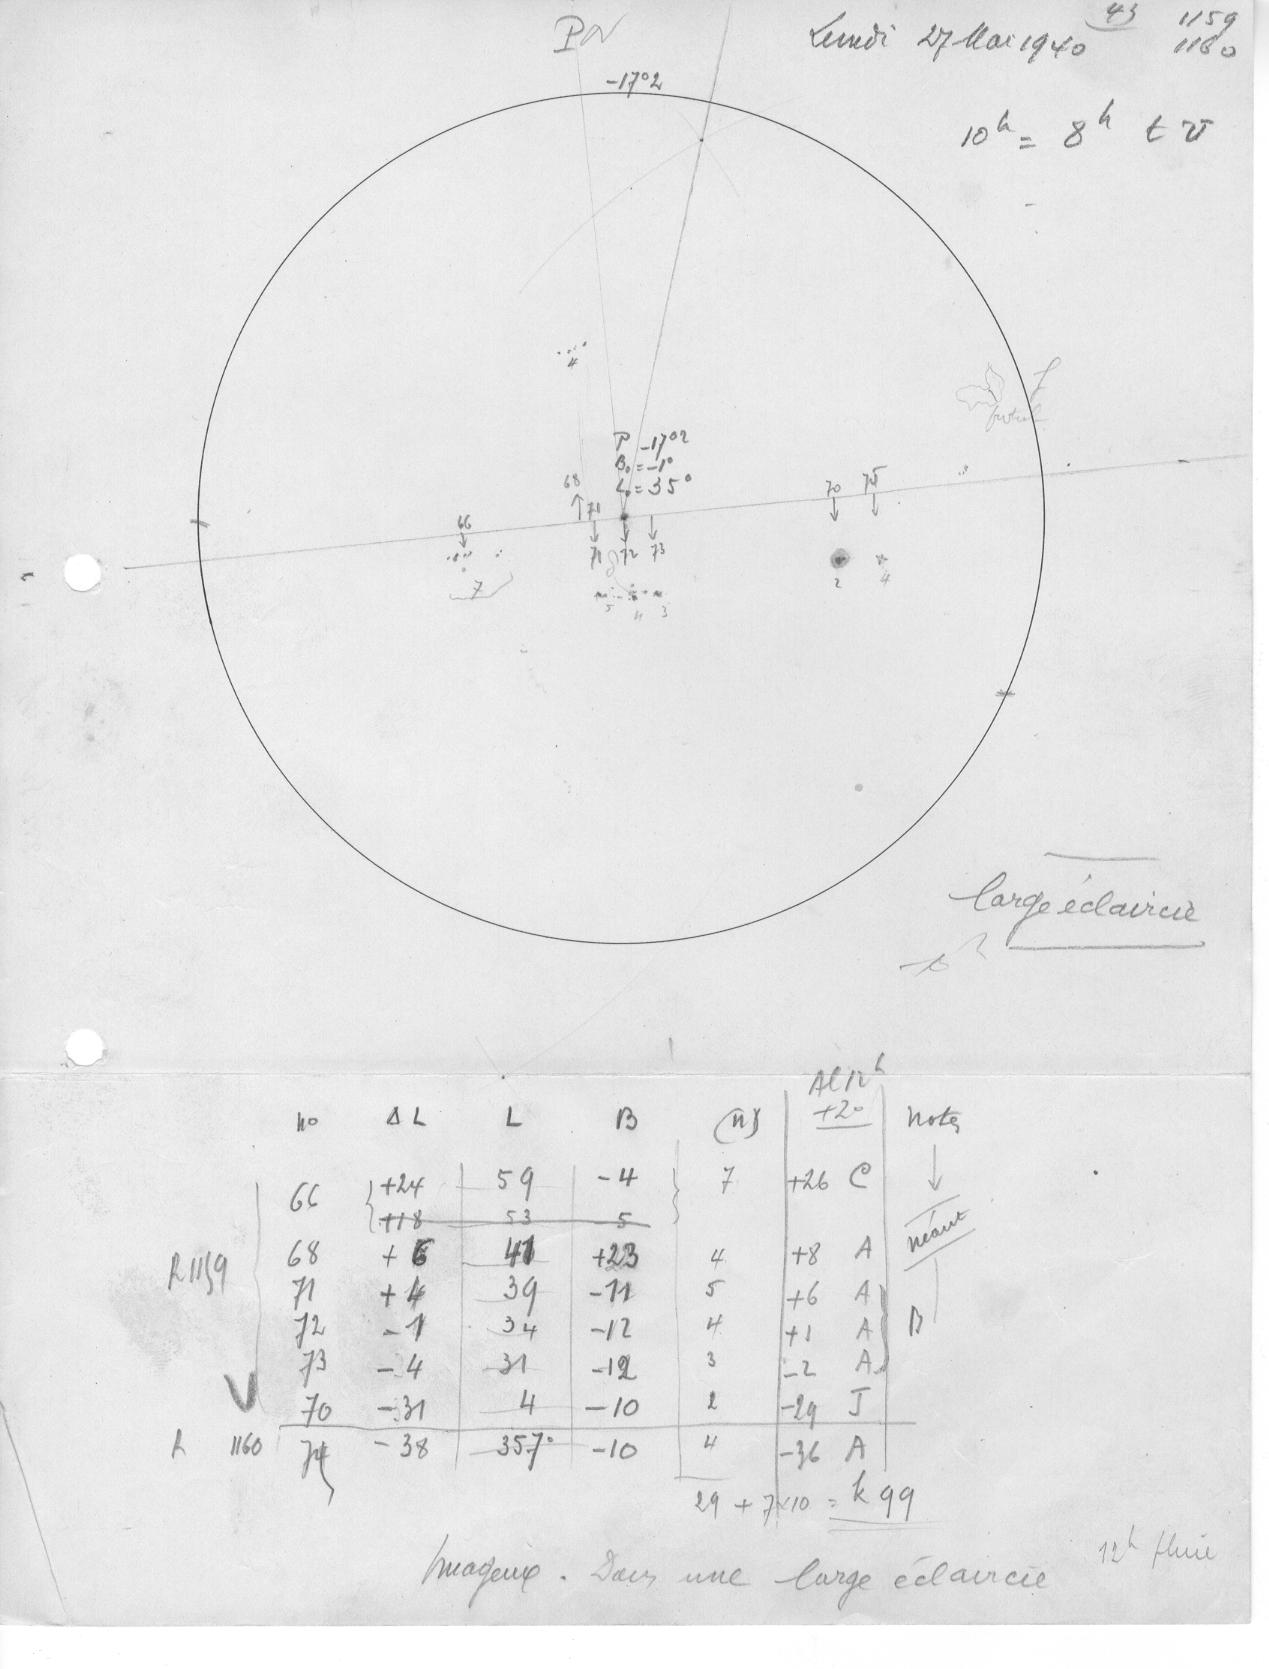 43 1159
Lundi 27 Mai 1940 1160
PN
-17°2
10h = 8h t U
4
P -17°2
B₀ = -1°
L₀ = 35°
68 71
66 70 75
71 72 73
7 5 4 3 2 4
large éclaircie
Al 12h
no Δ L L B (n) +2° Notes
66 +24 59 -4 7 +26 C
+18 53 5 néant
R 1159 68 +6 41 +23 4 +8 A
71 +4 39 -11 5 +6 A
72 -1 34 -12 4 +1 A B
73 -4 31 -12 3 -2 A
70 -31 4 -10 2 -29 J
R 1160 74 -38 357° -10 4 -36 A
29 + 7x10 = k 99
Nuageux. Dans une large éclaircie 12h pluie